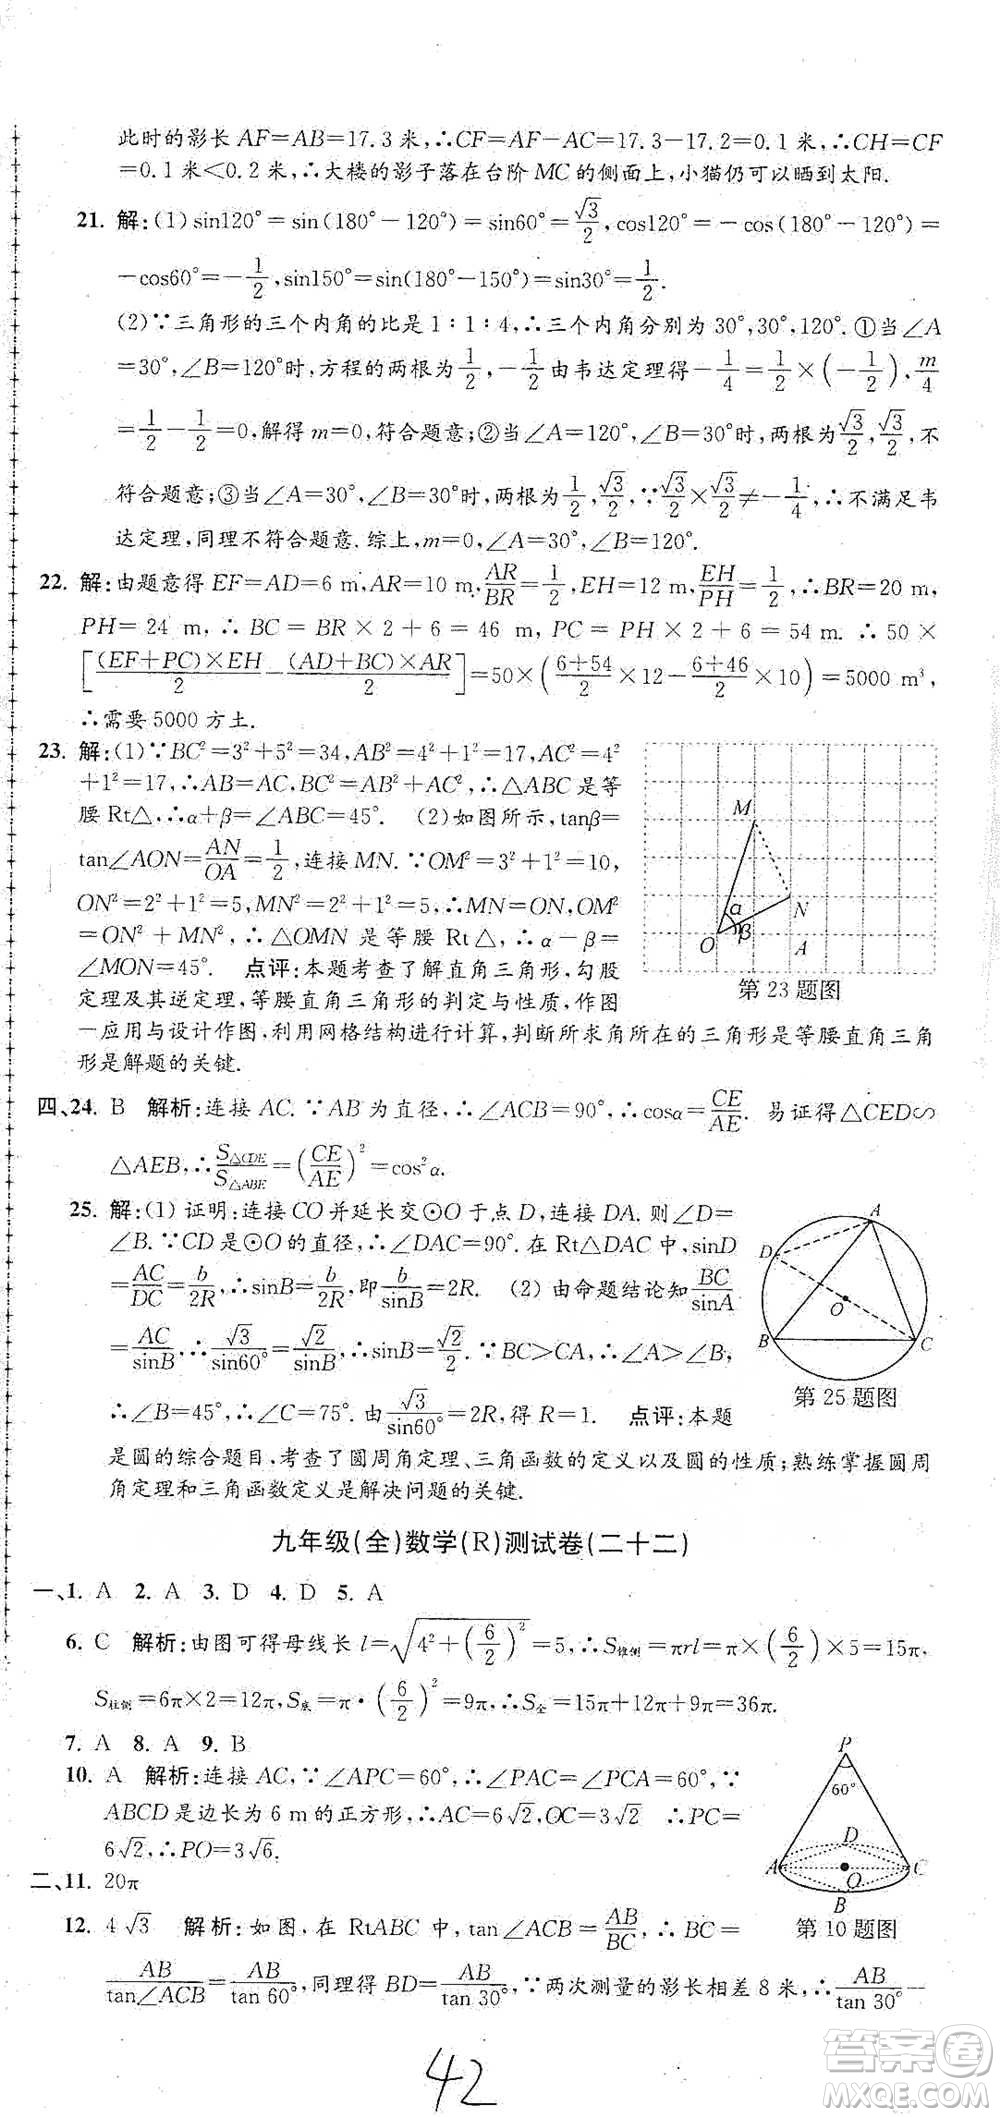 此时的影长 AF=AB=17.3 米,∴CF=AF-AC=17.3-17.2=0.1 米,∴CH=CF
=0.1 米<0.2 米,∴大楼的影子落在台阶 MC 的侧面上,小猫仍可以晒到太阳.
21. 解:(1) sin120°=sin(180°-120°)=sin60°=√3/2,cos120°=-cos(180°-120°)=
-cos60°=-1/2,sin150°=sin(180°-150°)=sin30°=1/2.
(2)∵三角形的三个内角的比是 1∶1∶4,∴三个内角分别为 30°,30°,120°.①当∠A
=30°,∠B=120°时,方程的两根为1/2,-1/2由韦达定理得-1/4=1/2×(-1/2)、m/4
=1/2-1/2=0,解得 m=0,符合题意;②当∠A=120°,∠B=30°时,两根为√3/2,√3/2,不
符合题意;③当∠A=30°,∠B=30°时,两根为1/2,√3/2,∵√3/2×√3/2≠-1/4,∴不满足韦
达定理,同理不符合题意.综上,m=0,∠A=30°,∠B=120°.
22. 解:由题意得 EF=AD=6 m,AR=10 m,AR/BR=1/2,EH=12 m,EH/PH=1/2,∴BR=20 m,
PH=24 m,∴BC=BR×2+6=46 m,PC=PH×2+6=54 m.∴50×
[(EF+PC)×EH/2-(AD+BC)×AR/2]=50×(6+54/2×12-6+46/2×10)=5000 m³,
∴需要 5000 方土.
23. 解:(1)∵BC²=3²+5²=34,AB²=4²+1²=17,AC²=4²
+1²=17,∴AB=AC,BC²=AB²+AC²,∴△ABC 是等
腰 Rt△,∴α+β=∠ABC=45°. (2)如图所示,tanβ=
tan∠AON=AN/OA=1/2,连接 MN.∵OM²=3²+1²=10,
ON²=2²+1²=5,MN²=2²+1²=5,∴MN=ON,OM²
=ON²+MN²,∴△OMN 是等腰 Rt△,∴α-β=
∠MON=45°. 点评:本题考查了解直角三角形,勾股
定理及其逆定理,等腰直角三角形的判定与性质,作图
一应用与设计作图,利用网格结构进行计算,判断所求角所在的三角形是等腰直角三角
形是解题的关键.
M
α
N
O
β
A
第 23 题图
四、24. B 解析:连接 AC.∵AB 为直径,∴∠ACB=90°,∴cosα=CE/AE. 易证得△CED∽
△AEB,∴S△CDE/S△ABE=(CE/AE)²=cos²α.
25. 解:(1) 证明:连接 CO 并延长交⊙O 于点 D,连接 DA. 则∠D=
∠B.∵CD 是⊙O 的直径,∴∠DAC=90°. 在 Rt△DAC 中,sinD
=AC/DC=b/2R,∴sinB=b/2R,即b/sinB=2R. (2) 由命题结论知BC/sinA
=AC/sinB,∴√3/sin60°=√2/sinB,∴sinB=√2/2.∵BC>CA,∴∠A>∠B,
∴∠B=45°,∴∠C=75°. 由√3/sin60°=2R,得 R=1. 点评:本题
是圆的综合题目,考查了圆周角定理、三角函数的定义以及圆的性质;熟练掌握圆周
角定理和三角函数定义是解决问题的关键.
A
D
O
B
C
第 25 题图
九年级(全)数学(R)测试卷(二十二)
一、1. A 2. A 3. D 4. D 5. A
6. C 解析:由图可得母线长 l=√(4²+(6/2)²)=5,∴S锥侧=πrl=π×(6/2)×5=15π,
S柱侧=6π×2=12π,S底=π·(6/2)²=9π,∴S全=15π+12π+9π=36π.
7. A 8. A 9. B
10. A 解析:连接 AC,∵∠APC=60°,∴∠PAC=∠PCA=60°,∵
ABCD 是边长为 6 m 的正方形,∴AC=6√2,OC=3√2 ∴PC=
6√2,∴PO=3√6.
P
60°
D
A
C
O
B
第 10 题图
二、11. 20π
12. 4√3 解析:如图,在 RtABC 中,tan∠ACB=AB/BC,∴BC=
AB/tan∠ACB=AB/tan 60°,同理得 BD=AB/tan 30°,∵两次测量的影长相差 8 米,∴AB/tan 30°-
42
答案卷
MXQE.COM